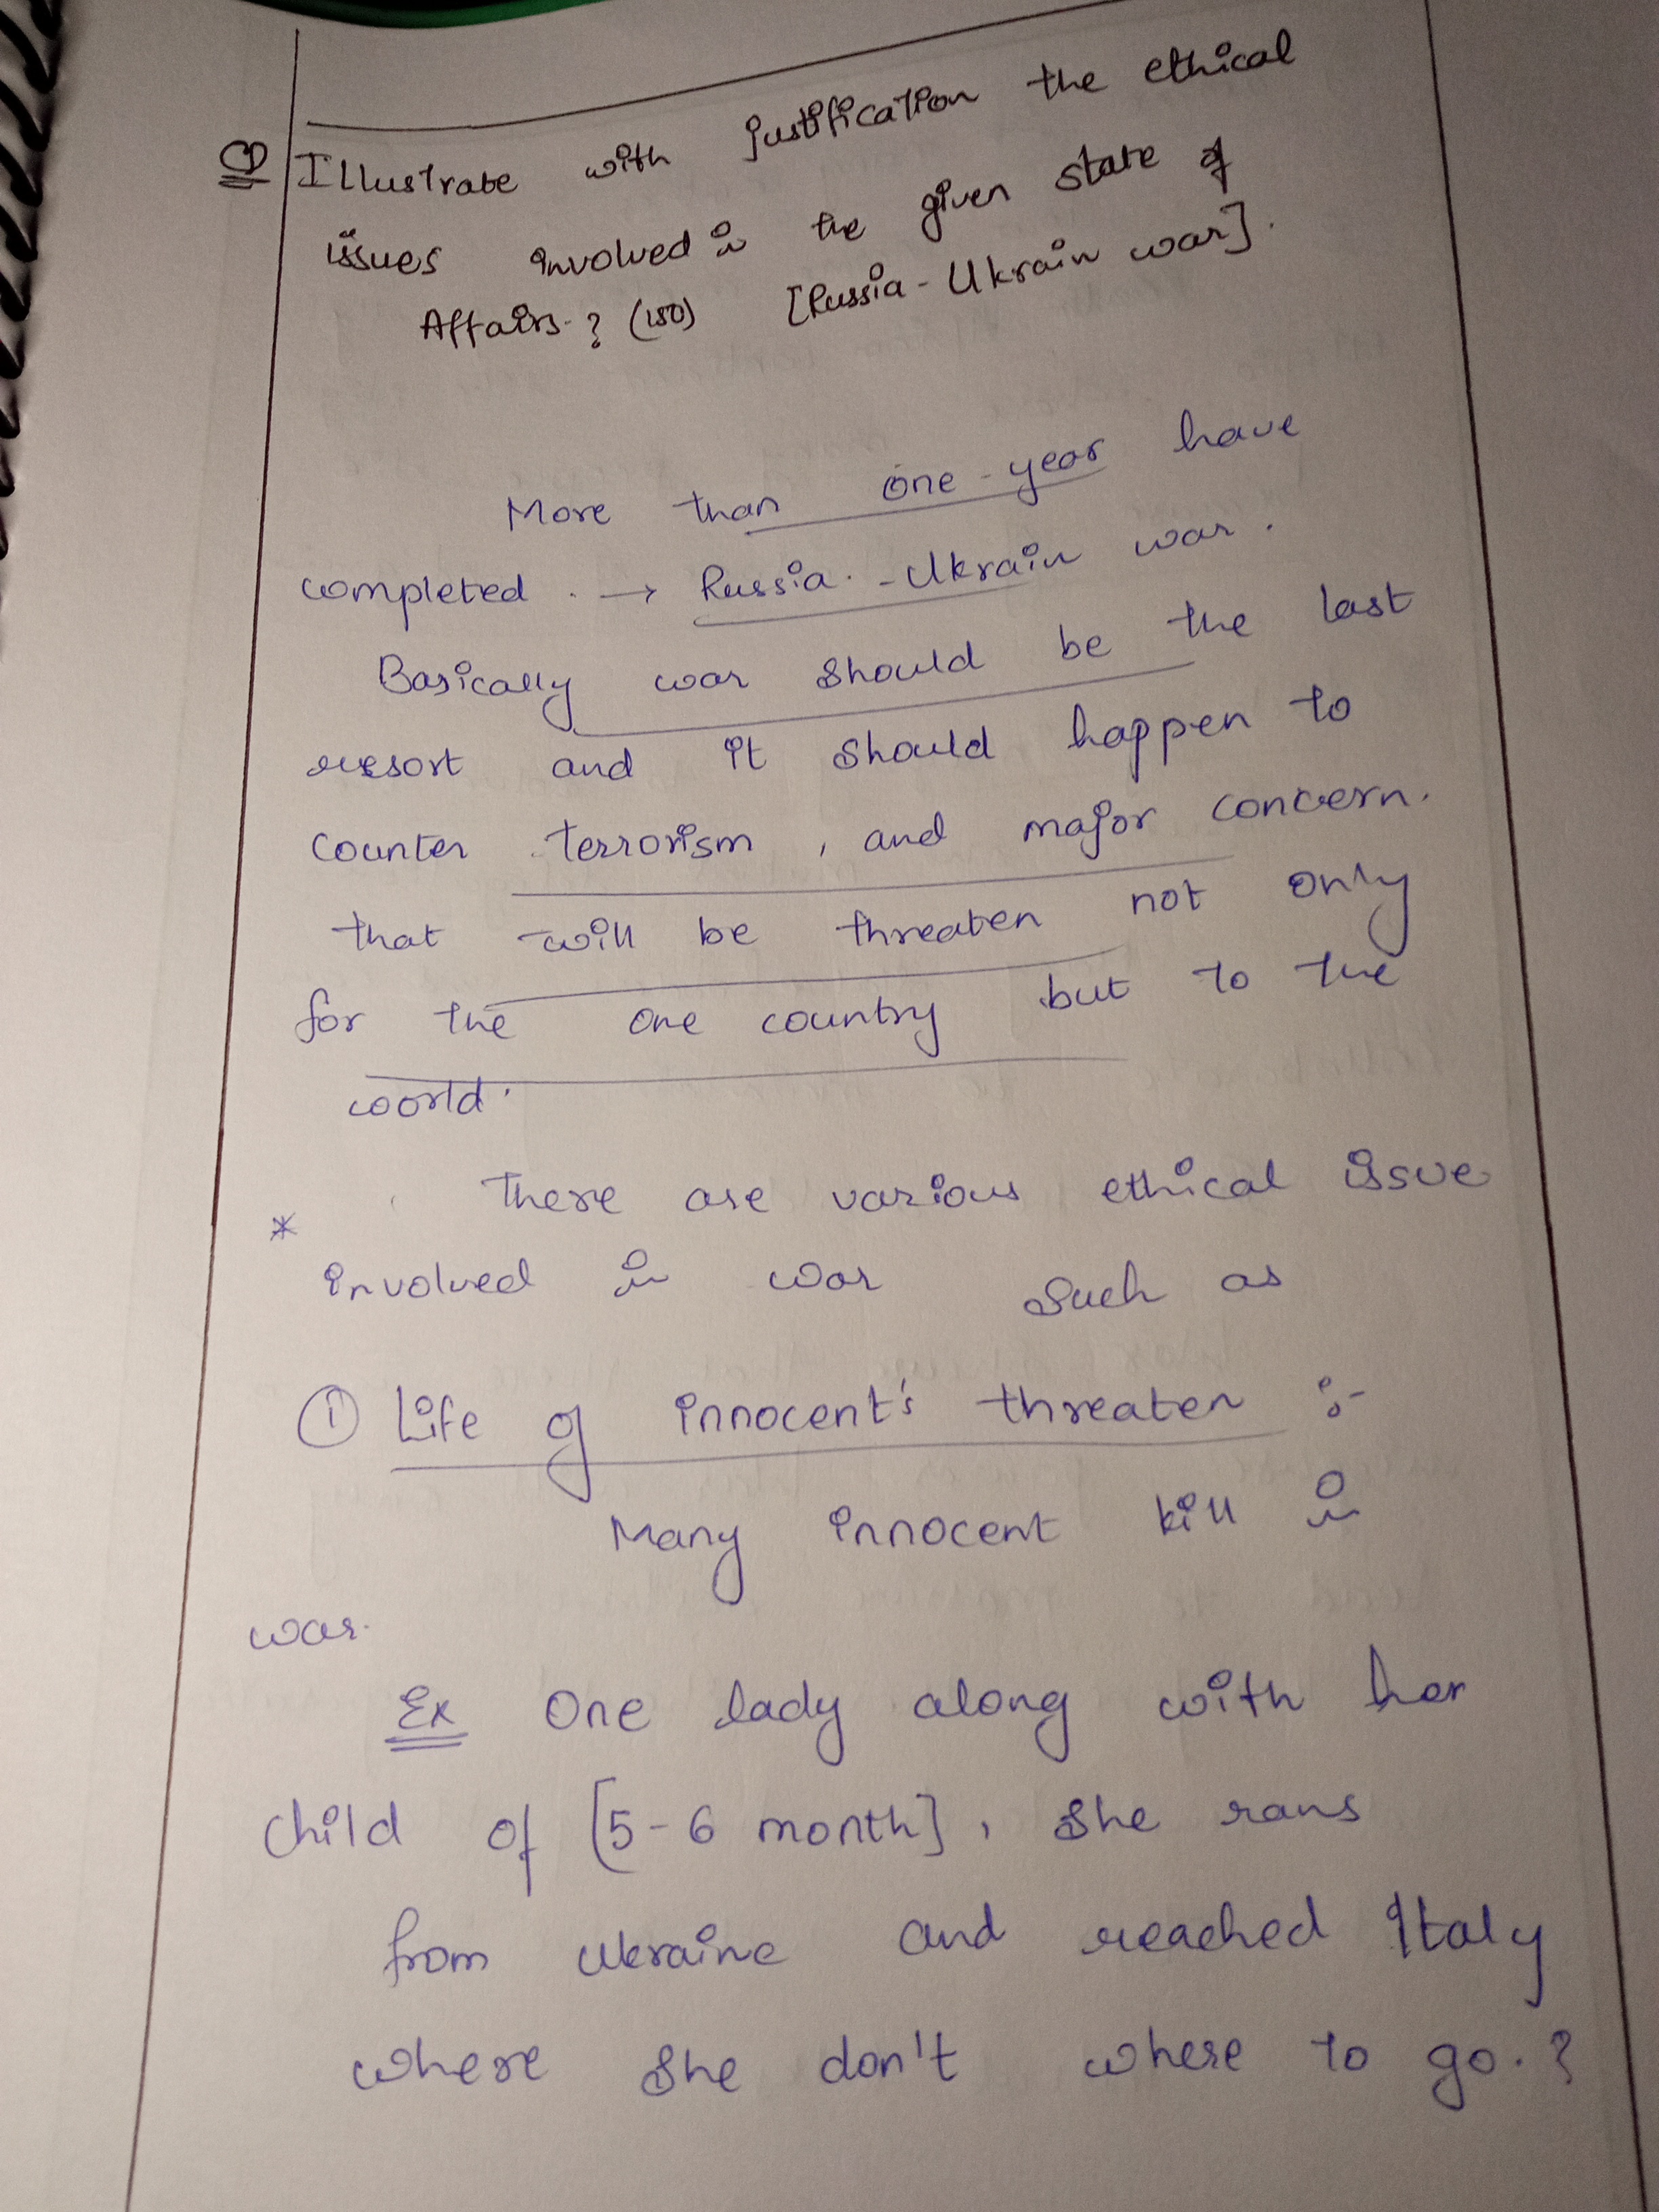 Q Illustrate with justification the ethical
issues involved in the given state of
Affairs.? (150) [Russia-Ukrain war].
More than one-year have
completed. → Russia-Ukrain war.
Basically war should be the last
resort and it should happen to
counter terrorism, and major concern.
that will be threaten not only
for the one country but to the
world.
* There are various ethical issue
involved in war such as
① Life of innocent's threaten :-
Many innocent kill in
war.
Ex One lady along with her
child of [5-6 month], she rans
from Ukraine and reached Italy
where she don't where to go.?